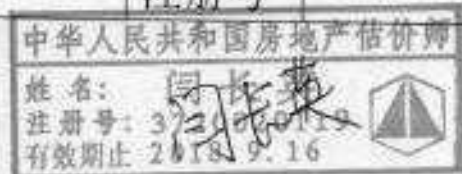 中华人民共和国房地产估价师
姓名: 闫长
注册号: 119
有效期止 2018.9.16